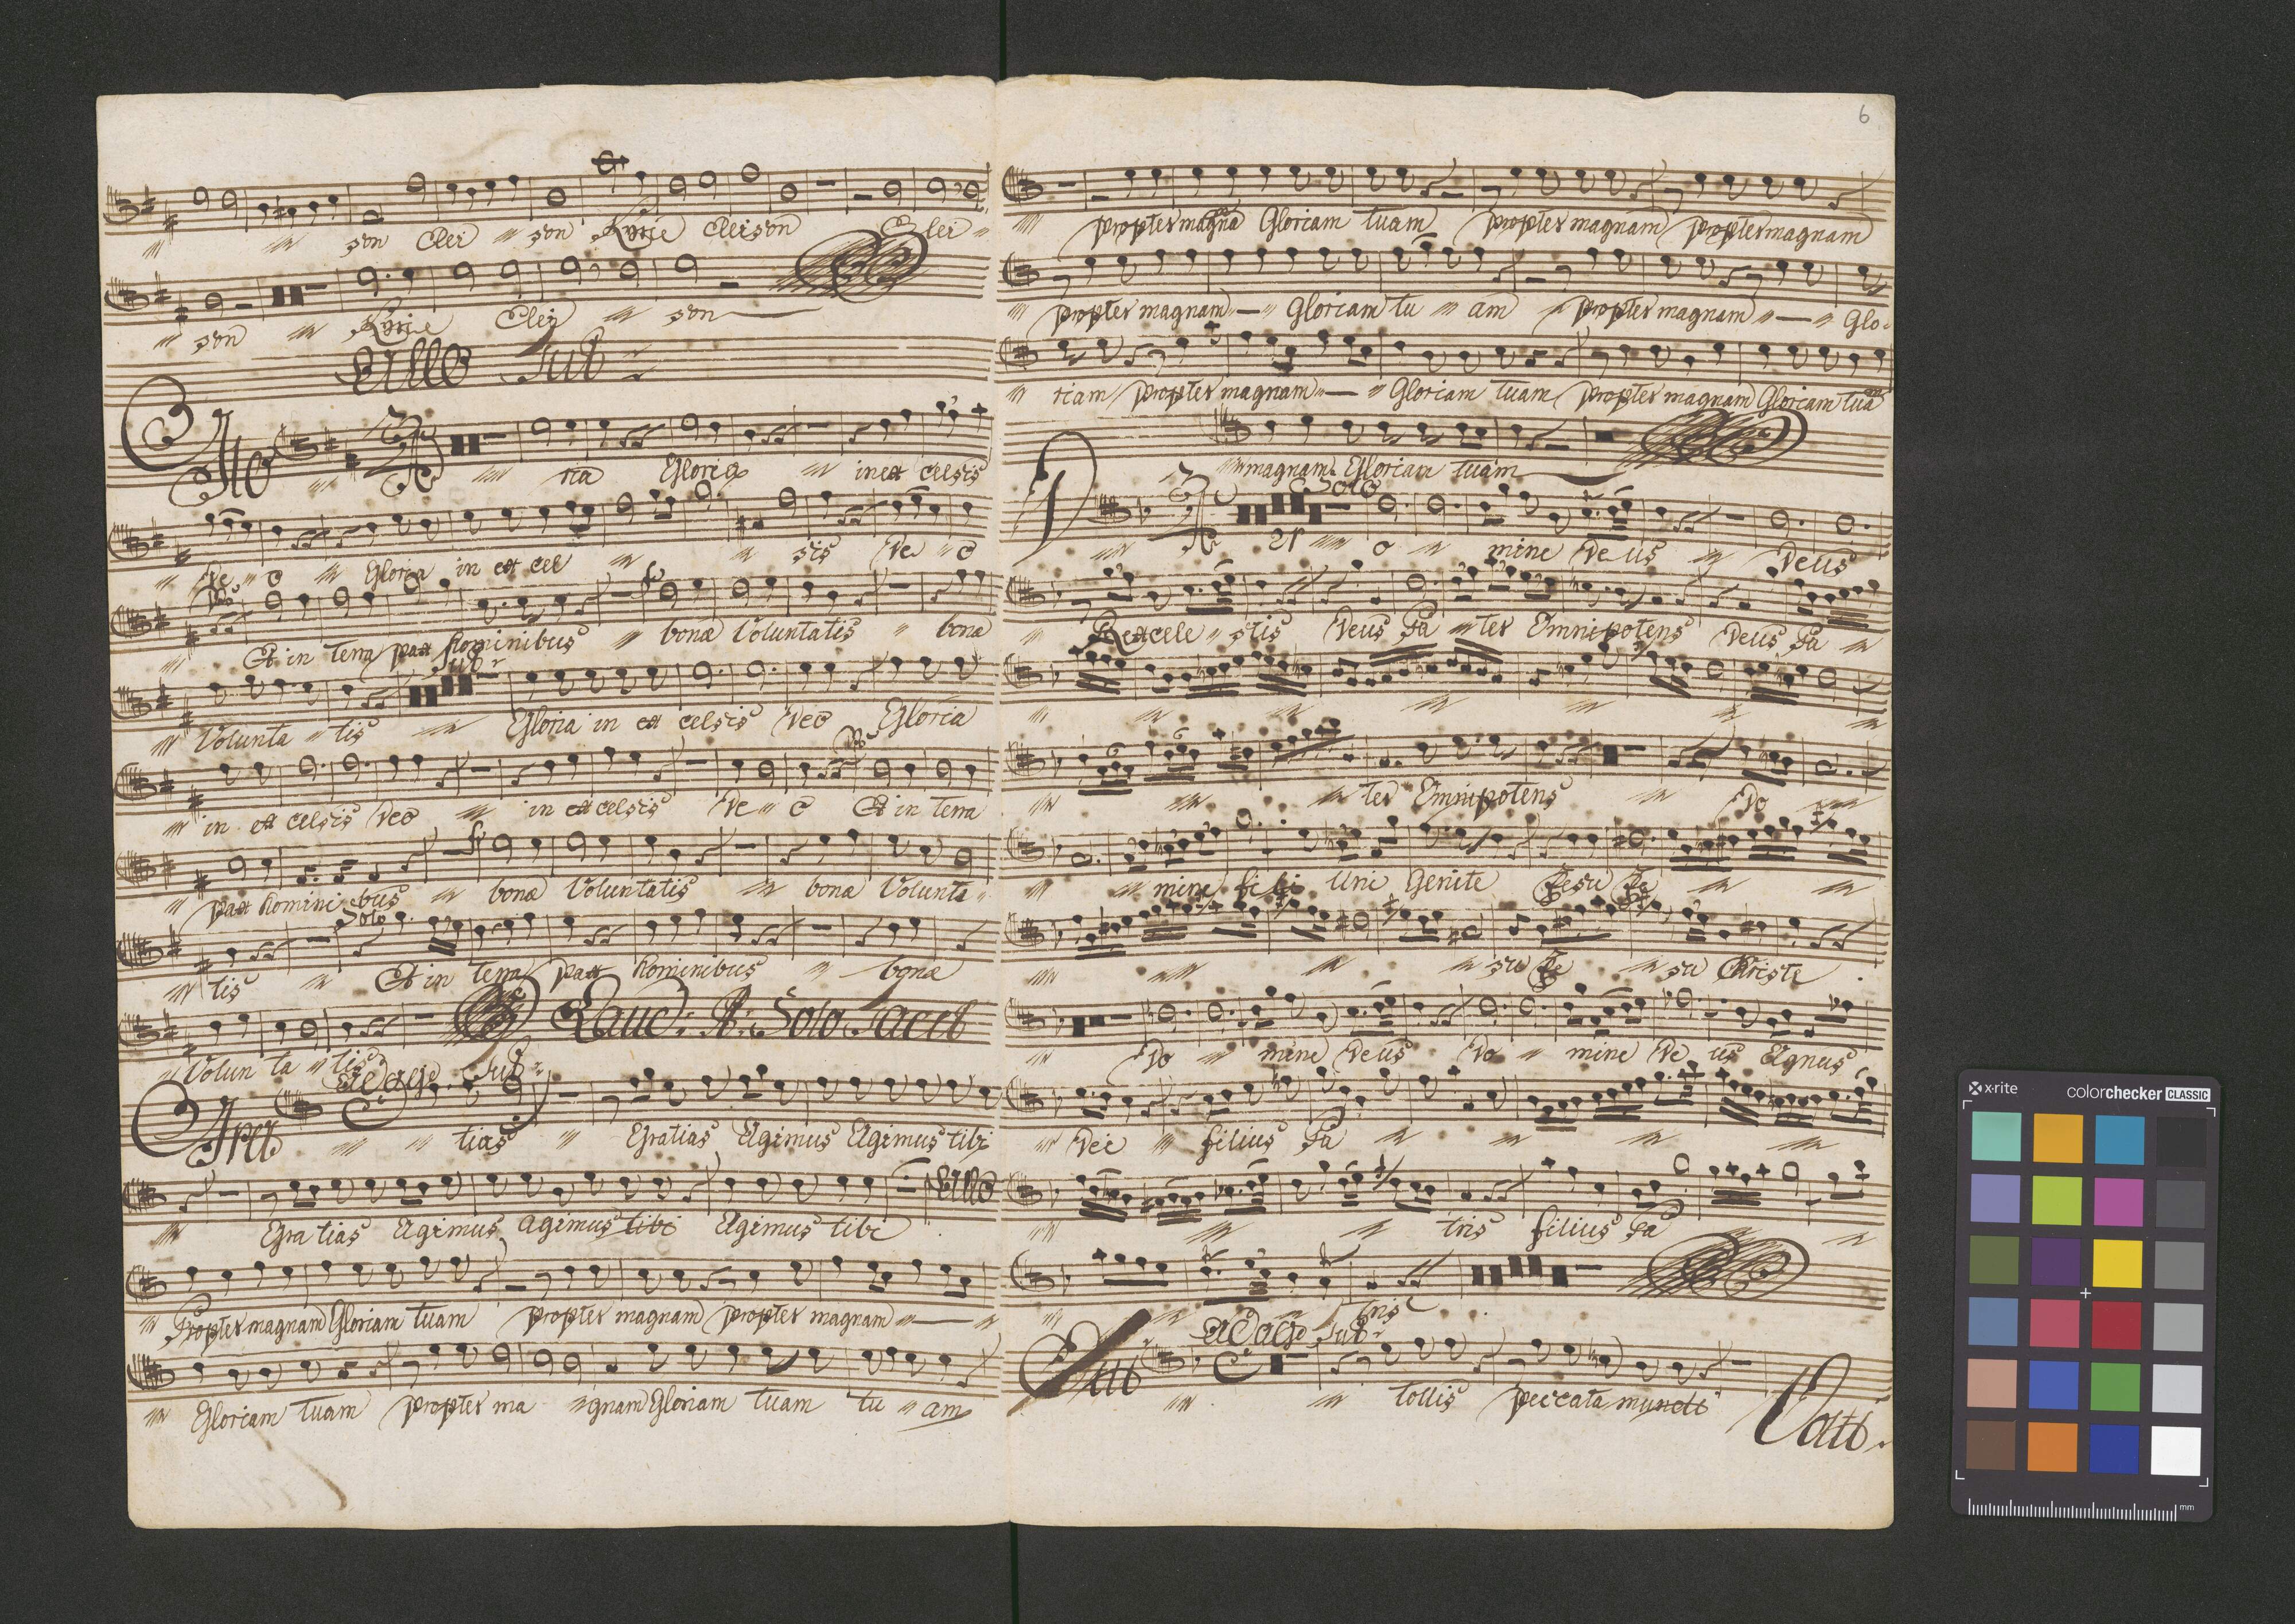 son Elei son Kyrie eleison Elei
son Kyrie Elei son
Allo Sub
Allo Glo ria Gloria in ex celsis
De o Gloria in ex cel sis De o
Et in terra pax hominibus bonæ Voluntatis bonæ
Volunta tis Gloria in ex celsis Deo Gloria
in ex celsis Deo in excelsis De o Et in terra
pax homini bus bonæ Voluntatis bona Volunta
Solo
tis Et in terra pax hominibus bonæ
Volun ta tis Laud: A: Solo Tacet
Adago Sub
Gra tias Gratias Agimus Agimus tibi
Gra tias Agimus agimus tibi Agimus tibi Allo
Propter magnam Gloriam tuam propter magnam propter magnam
Gloriam tuam propter ma gnam Gloriam tuam tu am
6
propter magnā Gloriam tuam propter magnam propter magnam
propter magnam Gloriam tu am propter magnam Glo
riam propter magnam Gloriam tuam propter magnam Gloriam tuā
magnam Gloriam tuam
Solo
D 21 o mine De us Deus
Rex cele stis Deus Pa ter Omnipotens Deus Pa
6 6
ter Omnipotens Do
mine fi li Uni Genite Jesu Je
su Je su Christe
Do mine Deus Do mine De us Agnus
Dei filius Pa
tris filius Pa
tris
Adago Sub
Qui tollis peccata mundi
Volti